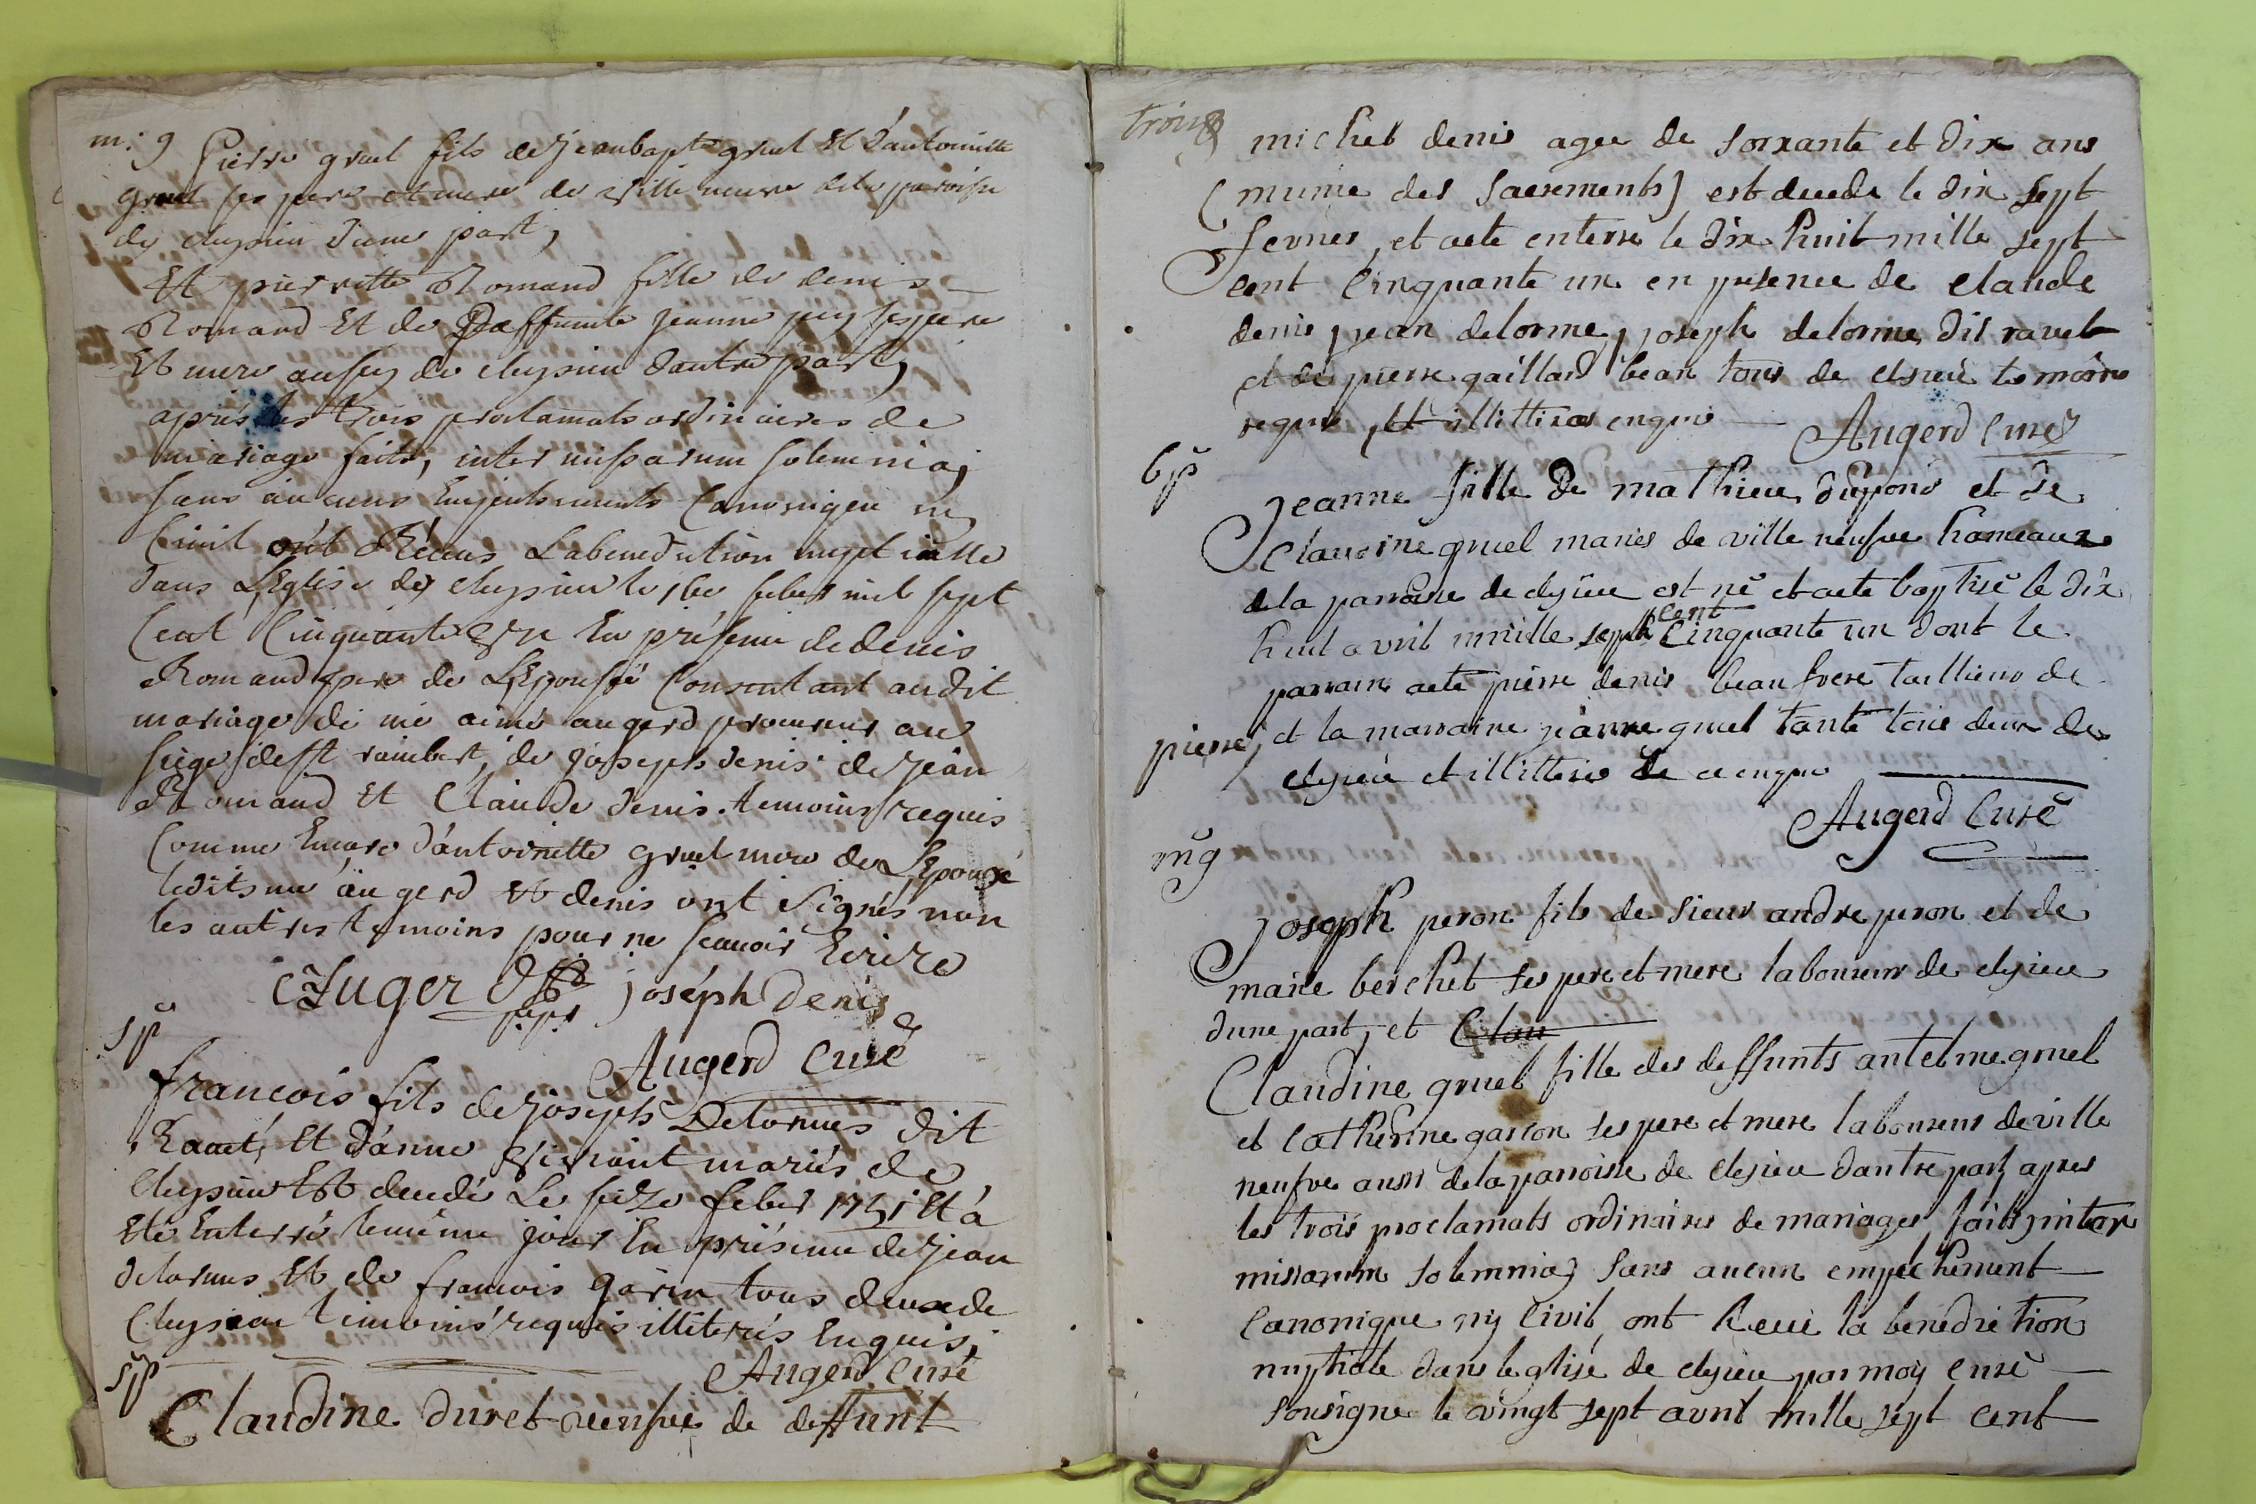 m: g
Pierre gruel fils de jeanbapte gruel Et d'antoinette
gruel ses pere et mere de ville neuve de la paroisse
de cleysieu d'une part,
Et pierrette Romand fille de denis
Romand Et de Deffunte jeanne ses pere
Et mere aussy de cleysieu dautre part,
aprés les trois proclamats ordinaires de
mariage faits, inter missarum solemnia,
sans aucuns Empechements Canonique ny
Civil ont Réceus La benediction nuptialle
dans L'Eglise de cleysieu le 16e feber mil sept
Cent Cinquante Un En présence de denis
Romand pere de L'Epousée Consentant audit
mariage de me aimé augerd procureur au
siège de st rambert, de joseph denis de jean
Romand Et Claude denis temoins requis
Comme Encore d'antoinette gruel mere de L'Epousé
ledits me augerd Et denis ont signés non
les autres temoins pour ne scauoir Ecrire
Auger joséph denis
Augerd curé
sp
francois fils de joseph Delormes dit
Ravet, Et d'anne mariés de
Cleysieu Est decedé Le seize feber 1751 Et à
Eté Enterré le même jour En présence de jean
delormes Et de francois garin tous deux de
Cleysieu temoins requis illiterés Enquis,
Augerd curé
sp
Claudine duret veufve de deffunt
trois
michel denis agee de soixante et dix ans
(munie des sacrements) est decede le dix sept
fevrier, et aete enterre le dix huit mille sept
cent cinquante un en presence de claude
denis, jean delorme, joseph delorme dit ravet
et de pierre gaillard bean tous de clesieu temoins
requis, et illitteres enquis
Augerd Curé
bp
jeanne fille de mathieu dupons et de
Claudine gruel maries de ville neufve hameaux
de la parroisse de clesieu est né et aete baptisé le dix
huit avril mille sept cent cinquante un dont le
parrain aete pierre denis beau frere taillieur de
pierre, et la marraine jeanne gruel tante tous deux de
clesieu et illitteres de ce enquis
Augerd Curé
mg
joseph peron fils de sieur andre peron et de
marie berchet ses pere et mere laboureurs de clesieu
dune part, et Clau
Claudine gruel fille des deffunts antelme gruel
et catherine gascon ses pere et mere laboureurs de ville
neufve aussi de la parroisse de clesieu dautre part, apres
les trois proclamats ordinaires de mariages, faits, inter
missarum solemnia, sans aucun empéchement
Canonique ny Civil, ont Receu la benediction
nuptiale dans leglise de clesieu par moy curé
sousigne le vingt sept avril mille sept cent